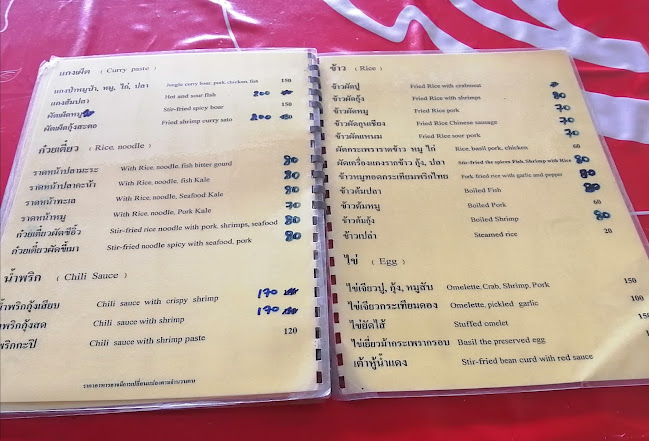 แกงเผ็ด ( Curry paste )
แกงป่าหมูป่า, หมู, ไก่, ปลา Jungle curry boar, pork, chicken, fish 150
แกงส้มปลา Hot and sour fish 200
ผัดเผ็ดหมู Stir-fried spicy boar 150
ผัดเผ็ดกุ้งสะตอ Fried shrimp curry sato 200
ก๋วยเตี๋ยว ( Rice, noodle )
ราดหน้าปลามะระ With Rice, noodle, fish bitter gourd 80
ราดหน้าปลาคะน้า With Rice, noodle, fish Kale 80
ราดหน้าทะเล With Rice, noodle, Seafood Kale 80
ราดหน้าหมู With Rice, noodle, Pork Kale 70
ก๋วยเตี๋ยวผัดซีอิ๊ว Stir-fried rice noodle with pork, shrimps, seafood 80
ก๋วยเตี๋ยวผัดขี้เมา Stir-fried noodle spicy with seafood, pork 80
น้ำพริก ( Chili Sauce )
น้ำพริกกุ้งเสียบ Chili sauce with crispy shrimp 170
น้ำพริกกุ้งสด Chili sauce with shrimp 170
พริกกะปิ Chili sauce with shrimp paste 120
ราคาอาหารอาจมีการเปลี่ยนแปลงตามจำนวนคน
ข้าว ( Rice )
ข้าวผัดปู Fried Rice with crabmeat
ข้าวผัดกุ้ง Fried Rice with shrimps 80
ข้าวผัดหมู Fried Rice pork 70
ข้าวผัดกุนเชียง Fried Rice Chinese sausage 70
ข้าวผัดแหนม Fried Rice sour pork 70
ผัดกระเพราราดข้าว หมู ไก่ Rice, basil pork, chicken 60
ผัดเครื่องแกงราดข้าว กุ้ง, ปลา Stir-fried the spices Fish, Shrimp with Rice 80
ข้าวหมูทอดกระเทียมพริกไทย Pork fried rice with garlic and pepper 80
ข้าวต้มปลา Boiled Fish 80
ข้าวต้มหมู Boiled Pork 60
ข้าวต้มกุ้ง Boiled Shrimp 80
ข้าวเปล่า Steamed rice 20
ไข่ ( Egg )
ไข่เจียวปู, กุ้ง, หมูสับ Omelette, Crab, Shrimp, Pork 150
ไข่เจียวกระเทียมดอง Omelette, pickled garlic 100
ไข่ยัดไส้ Stuffed omelet
ไข่เยี่ยวม้ากระเพรากรอบ Basil the preserved egg
เต้าหู้น้ำแดง Stir-fried bean curd with red sauce